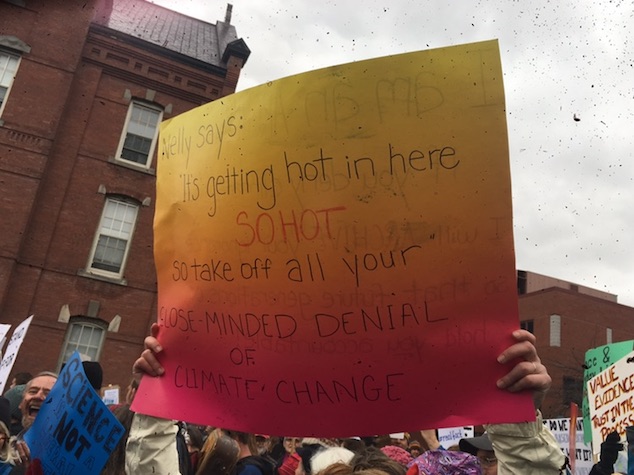 Nelly says:
"It's getting hot in here
SO HOT
so take off all your
CLOSE-MINDED DENIAL
OF
CLIMATE CHANGE
SCIENCE
NOT
VALUE
EVIDENCE
TRUST IN THE